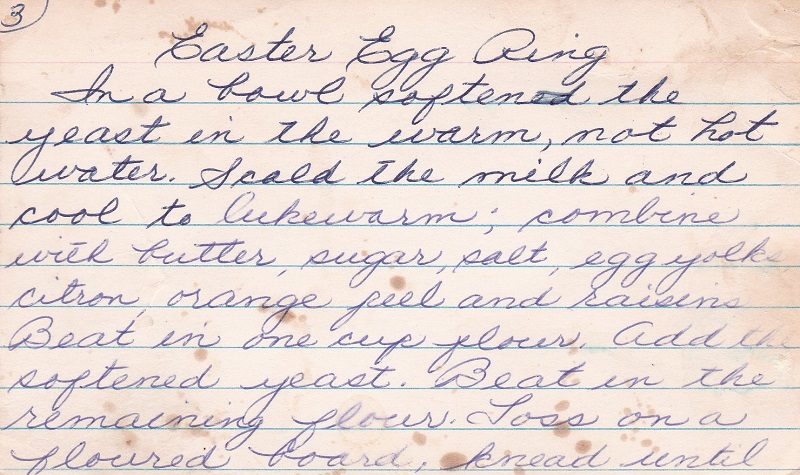 3
Easter Egg Ring
In a bowl softened the
yeast in the warm, not hot
water. Scald the milk and
cool to lukewarm; combine
with butter, sugar, salt, egg yolks
citron, orange peel and raisins
Beat in one cup flour. Add the
softened yeast. Beat in the
remaining flour. Toss on a
floured board, knead until